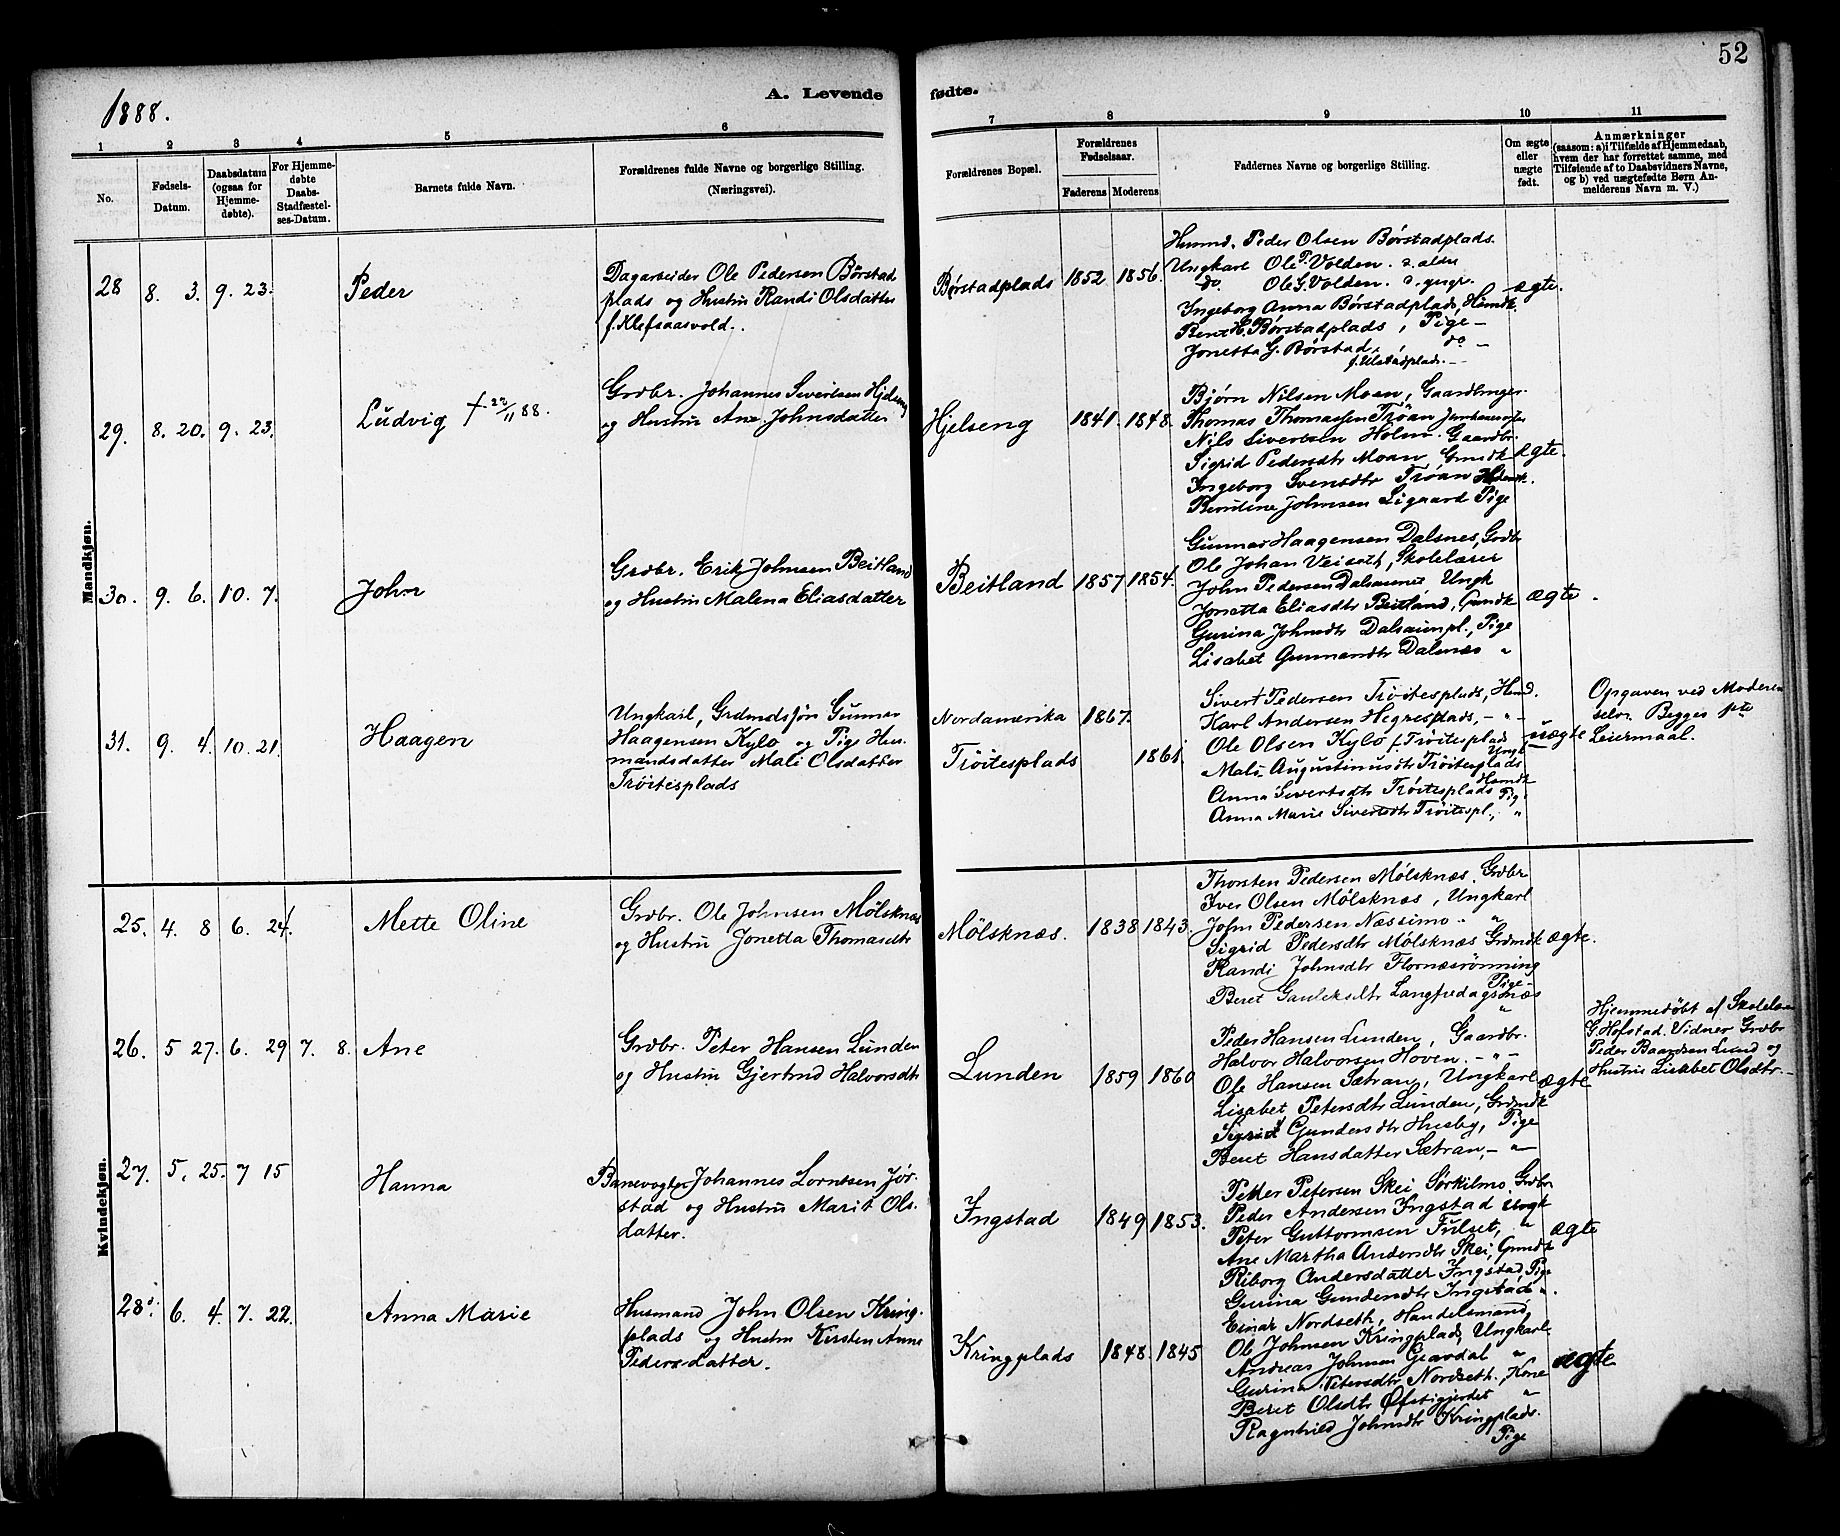 52
1888.
A. Levende fødte.
1 2 3 4 5 6 7 8 9 10 11
No.
Fødsels-
Datum.
Daabsdatum
(ogsaa for
Hjemme-
døbte).
For Hjemme-
døbte
Daabs-
Stadfæstel-
ses-Datum.
Barnets fulde Navn.
Forældrenes fulde Navne og borgerlige Stilling.
(Næringsvei).
Forældrenes Bopæl.
Forældrenes
Fødselsaar.
Faderens Moderens
Faddernes Navne og borgerlige Stilling.
Om ægte
eller
uægte
født.
Anmærkninger
(saasom: a) i Tilfælde af Hjemmedaab,
hvem der har forrettet samme, med
Tilføiende af to Daabsvidners Navne,
og b) ved uægtefødte Børn An-
melderens Navn m. V.)
Mandkjøn.
28 8. 3. 9. 23. Peder
Dagarbeider Ole Pedersen Børstad
plads og Hustru Randi Olsdatter
f. Klefsaasvold.
Børstadplads 1852 1856.
Husmd. Peder Olsen Børstadplads.
Ungkarl Ole P. Volden. d. ældre
do Ole S. Volden. d. yngr.
Ingeborg Anna Børstadplads, Hsmdk.
Beret H. Børstadplads, Pige
Jonetta G. Børstad, do
f. Ulstadplads.
ægte.
29. 8. 20. 9. 23. Ludvig † 23/11 88.
Grdbr. Johannes Sivertsen Hjelseng
og Hustru Ane Johnsdatter
Hjelseng 1841. 1848.
Bjørn Nilsen Moan, Gaardbruger
Thomas Thomassen Trøan
Nils Sivertsen Holm. Gaardbr.
Sigrid Pedersdtr Moan, Grmdk
Ingeborg Svensdtr Trøan
Berntine Johnsen Ligaard Pige
ægte.
30. 9. 6. 10. 7. John
Grdbr. Erik Johnsen Beitland
og Hustru Malena Eliasdatter
Beitland 1857 1854.
Gunnar Haagensen Dalsnes, Grdbr
Ole Johan Veiseth, Skolelærer
John Pedersen Dalsaunet Ungk
Jonetta Eliasdtr Beitland, Grmdk
Gurina Johnsdtr Dalsaunpl., Pige
Lisabet Gunnarsdtr Dalsnes "
ægte
31. 9. 4. 10. 21. Haagen
Ungkarl, Grdmdssøn Gunnar
Haagensen Kylo og Pige Hus-
mandsdatter Mali Olsdatter
Trøitesplads
Nordamerika 1867.
Trøitesplads 1861.
Sivert Pedersen Trøitesplads, Hsmd.
Karl Andersen Hegresplads, - " -
Ole Olsen Kylo f. Trøitesplad Ungk
Mali Augustinusdtr Trøitesplads Hsmdk
Anna Sivertsdtr Trøitesplads Pig
Anna Marie Sivertsdtr Trøitespl., "
uægte
Opgaven ved Moderen
selv. Begges 1ste
Leiermaal.
Kvindekjøn.
25. 4. 8 6. 24. Mette Oline
Grdbr. Ole Johnsen Mølsknæs
og Hustru Jonetta Thomasdtr
Mølsknæs. 1838 1843.
Thorsten Pedersen Mølsknæs, Grdbr
Iver Olsen Mølsknæs, Ungkarl
John Pedersen Næssimo "
Sigrid Pedersdtr Mølsknæs Grdmdk
Randi Johnsdtr Flornæsrønning
Pige
Beret Gauleksdtr Langfredagsnæs
"
ægte.
26. 5 27. 6. 29 7. 8. Ane
Grdbr. Peter Hansen Lunden
og Hustru Gjertrud Halvorsdtr
Lunden 1859 1860
Peder Hansen Lunden, Gaardbr.
Halvor Halvorsen Hoven. - " -
Ole Hansen Sætran, Ungkarl
Lisabet Petersdtr Lunden, Grdmdk
Sigrid Gundersdtr Husby, Pige
Beret Hansdatter Sætran, - " -
ægte
Hjemmedøbt af Skolelær
G. Hofstad. Vidner Grdbr
Peder Baardsen Lund og
Hustru Lisabet Olsdtr.
27. 5. 25. 7 15 Hanna
Banevogter Johannes Lorntsen Jør-
stad og Hustru Marit Ols-
datter.
Ingstad 1849 1853.
Petter Petersen Skei Sørkilmo, Grdbr.
Peder Andersen Ingstad Ungk
Peter Guttormsen Fulset, "
Ane Martha Andersdtr Skei, Grmdk
Riborg Andersdatter Ingstad, Pige
Gurina Gundersdtr Ingstad "
ægte
28. 6. 4. 7. 22. Anna Marie
Husmand John Olsen Kring-
plads og Hustru Kirsten Anne
Pedersdatter.
Kringplads 1848. 1845
Einar Nordseth, Handelsmand
Ole Johnsen Kringplads, Ungkarl
Andreas Johnsen Græsdal "
Gurina Petersdtr Nordseth, Kone
Beret Olsdtr Øfstigjerdet "
Ragnhild Johnsdtr Kringplads.
Pige
ægte